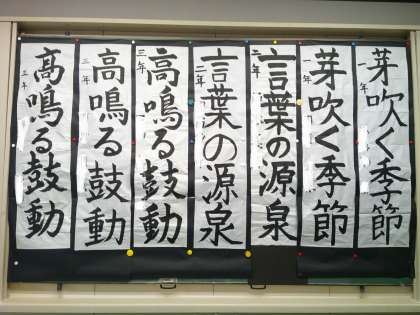 芽吹く季節
一年
芽吹く季節
一年
言葉の源泉
二年
言葉の源泉
二年
高鳴る鼓動
三年
高鳴る鼓動
三年
高鳴る鼓動
三年